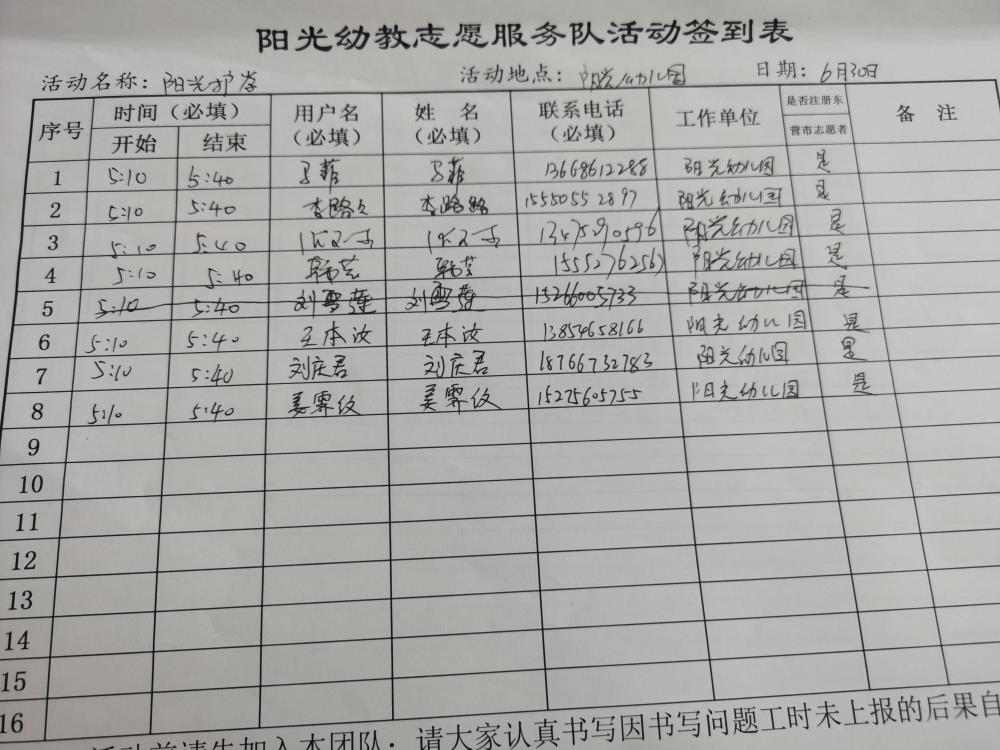 阳光幼教志愿服务队活动签到表
活动名称：阳光护学 活动地点：阳光幼儿园 日期：6月30日
序号 时间（必填） 开始 结束 用户名（必填） 姓名（必填） 联系电话（必填） 工作单位 是否注册东营市志愿者 备注
1 5:10 5:40 马菲 马菲 13668612288 阳光幼儿园 是
2 5:10 5:40 李路路 李路路 15550552897 阳光幼儿园 是
3 5:10 5:40 13475290596 阳光幼儿园 是
4 5:10 5:40 韩芸 韩芸 15552762567 阳光幼儿园 是
5 5:10 5:40 刘雪莲 刘雪莲 15266005733 阳光幼儿园 是
6 5:10 5:40 王本汝 王本汝 13854658166 阳光幼儿园 是
7 5:10 5:40 刘庆君 刘庆君 18766732783 阳光幼儿园 是
8 5:10 5:40 姜霁纹 姜霁纹 15275605755 阳光幼儿园 是
9
10
11
12
13
14
15
16
活动前请先加入本团队：请大家认真书写因书写问题工时未上报的后果自